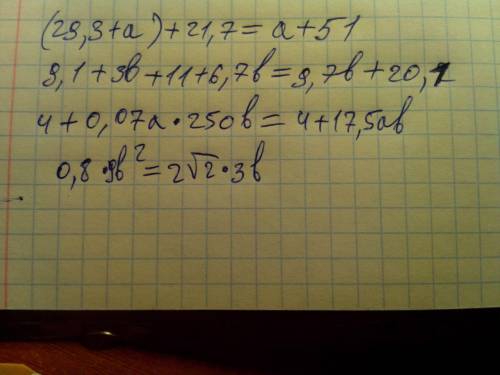 (29,3+a)+21,7=a+51
9,1+3b+11+6,7b=9,7b+20,1
4+0,07a·250b=4+17,5ab
0,8·9b²=2√2·3b